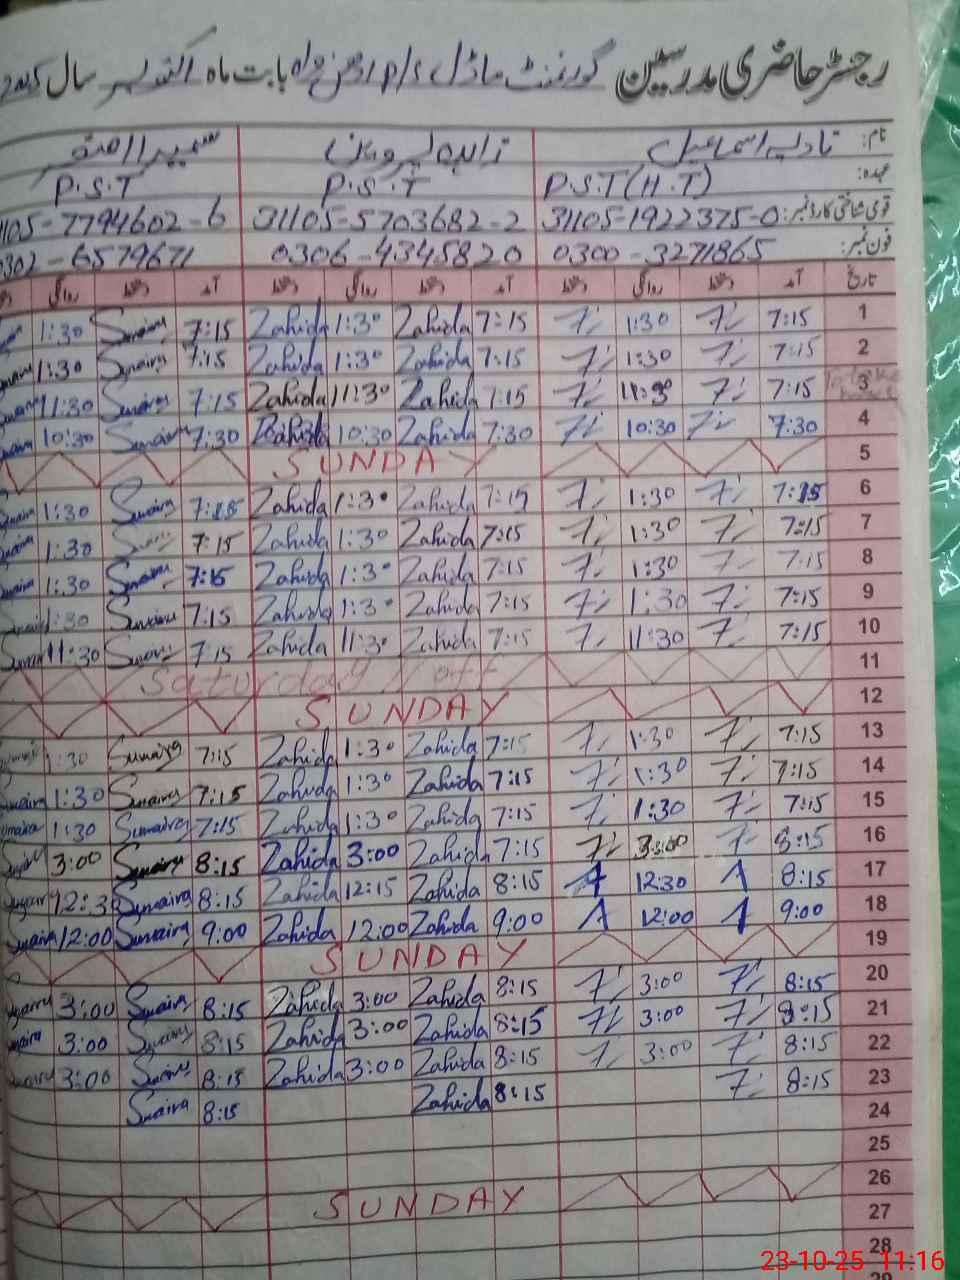 رجسٹر حاضری مدرسین گورنمنٹ ماڈل بابت ماہ اکتوبر سال 2025
نام: نادیہ اسماعیل زاہدہ پروین سمیرا اصغر
عہدہ: P.S.T (H.T) P.S.T P.S.T
قومی شناختی کارڈ نمبر: 31105-1922375-0 31105-5703682-2 1105-7794602-6
فون نمبر: 0300-3271865 0306-4345820 0302-6579671
تاریخ آمد دستخط روانگی دستخط آمد دستخط روانگی دستخط آمد دستخط روانگی
1:30 Sumaira 7:15 Zahida 1:30 Zahida 7:15 1:30 7:15 1
1:30 Sumaira 7:15 Zahida 1:30 Zahida 7:15 1:30 7:15 2
11:30 Sumaira 7:15 Zahida 11:30 Zahida 7:15 11:30 7:15 3
10:30 Sumaira 7:30 Zahida 10:30 Zahida 7:30 10:30 7:30 4
SUNDAY 5
1:30 Sumaira 7:15 Zahida 1:30 Zahida 7:15 1:30 7:15 6
1:30 Sumaira 7:15 Zahida 1:30 Zahida 7:15 1:30 7:15 7
1:30 Sumaira 7:15 Zahida 1:30 Zahida 7:15 1:30 7:15 8
1:30 Sumaira 7:15 Zahida 1:30 Zahida 7:15 1:30 7:15 9
11:30 Sumaira 7:15 Zahida 11:30 Zahida 7:15 11:30 7:15 10
Saturday off 11
SUNDAY 12
1:30 Sumaira 7:15 Zahida 1:30 Zahida 7:15 1:30 7:15 13
1:30 Sumaira 7:15 Zahida 1:30 Zahida 7:15 1:30 7:15 14
1:30 Sumaira 7:15 Zahida 1:30 Zahida 7:15 1:30 7:15 15
3:00 Sumaira 8:15 Zahida 3:00 Zahida 7:15 3:00 8:15 16
12:30 Sumaira 8:15 Zahida 12:15 Zahida 8:15 A 12:30 A 8:15 17
Sumaira 12:00 Sumaira 9:00 Zahida 12:00 Zahida 9:00 A 12:00 A 9:00 18
SUNDAY 19
3:00 Sumaira 8:15 Zahida 3:00 Zahida 8:15 3:00 8:15 20
3:00 Sumaira 8:15 Zahida 3:00 Zahida 8:15 3:00 8:15 21
3:00 Sumaira 8:15 Zahida 3:00 Zahida 8:15 3:00 8:15 22
Sumaira 8:15 Zahida 8:15 8:15 23
24
25
26
SUNDAY 27
28
29
23-10-25 11:16